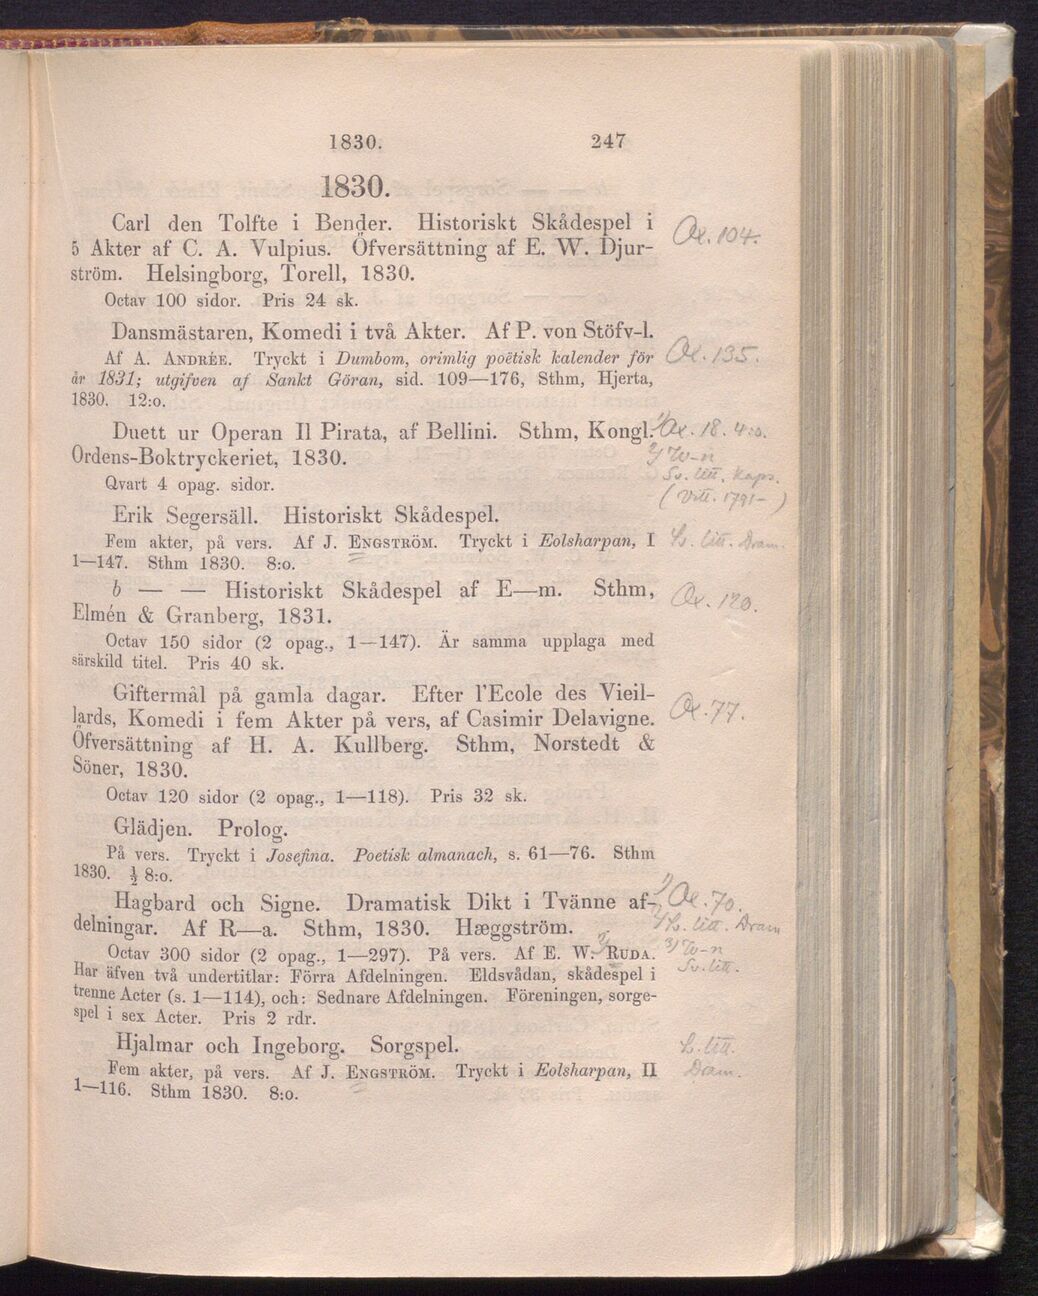 1830. 247
1830.
Carl den Tolfte i Bender. Historiskt Skådespel i
5 Akter af C. A. Vulpius. Öfversättning af E. W. Djur-
ström. Helsingborg, Torell, 1830.
Ox. 104.
Octav 100 sidor. Pris 24 sk.
Dansmästaren, Komedi i två Akter. Af P. von Stöfv-l.
Af A. ANDRÉE. Tryckt i Dumbom, orimlig poëtisk kalender för
Ox. 135.
år 1831; utgifven af Sankt Göran, sid. 109—176, Sthm, Hjerta,
1830. 12:o.
Duett ur Operan Il Pirata, af Bellini. Sthm, Kongl.
1/ Ox. 18. 4:o.
Ordens-Boktryckeriet, 1830.
2/ W-n
Sv. litt. Kaps.
Qvart 4 opag. sidor.
(Vitt. 1791- )
Erik Segersäll. Historiskt Skådespel.
Fem akter, på vers. Af J. ENGSTRÖM. Tryckt i Eolsharpan, I
litt. Dram.
1—147. Sthm 1830. 8:o.
b — — Historiskt Skådespel af E—m. Sthm,
Ox. 120.
Elmén & Granberg, 1831.
Octav 150 sidor (2 opag., 1—147). Är samma upplaga med
särskild titel. Pris 40 sk.
Giftermål på gamla dagar. Efter l'Ecole des Vieil-
lards, Komedi i fem Akter på vers, af Casimir Delavigne.
Ox. 77.
Öfversättning af H. A. Kullberg. Sthm, Norstedt &
Söner, 1830.
Octav 120 sidor (2 opag., 1—118). Pris 32 sk.
Glädjen. Prolog.
På vers. Tryckt i Josefina. Poetisk almanach, s. 61—76. Sthm
1830. ½ 8:o.
Hagbard och Signe. Dramatisk Dikt i Tvänne af-
1/ Ox. 70.
delningar. Af R—a. Sthm, 1830. Hæggström.
litt. Dram
Octav 300 sidor (2 opag., 1—297). På vers. Af E. W. RUDA.
3/ W-n
Sv. litt.
Har äfven två undertitlar: Förra Afdelningen. Eldsvådan, skådespel i
trenne Acter (s. 1—114), och: Sednare Afdelningen. Föreningen, sorge-
spel i sex Acter. Pris 2 rdr.
Hjalmar och Ingeborg. Sorgspel.
litt.
Fem akter, på vers. Af J. ENGSTRÖM. Tryckt i Eolsharpan, II
Dram.
1—116. Sthm 1830. 8:o.